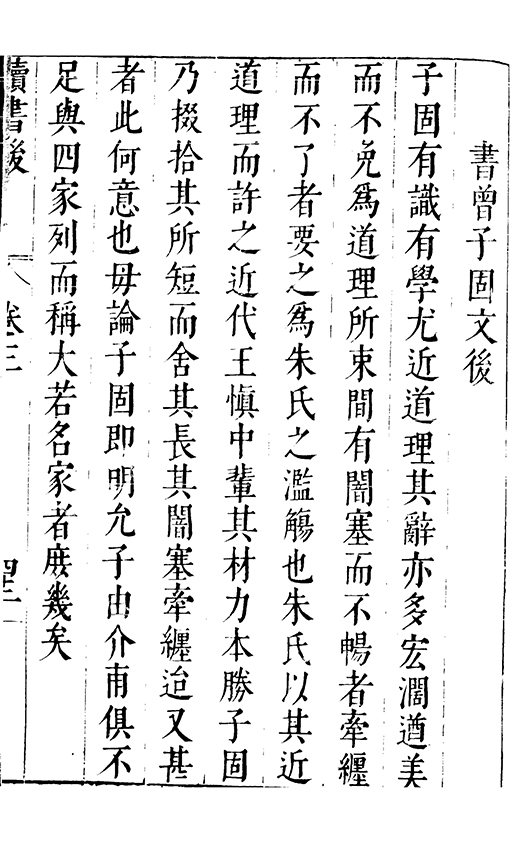 書曾子固文後
子固有識有學尤近道理其辭亦多宏濶遒美
而不免爲道理所束間有闇塞而不暢者牽纏
而不了者要之爲朱氏之濫觴也朱氏以其近
道理而許之近代王愼中輩其材力本勝子固
乃掇拾其所短而舍其長其闇塞牽纏迨又甚
者此何意也毋論子固即明允子由介甫俱不
足與四家列而稱大若名家者庶幾矣
讀書後
卷三